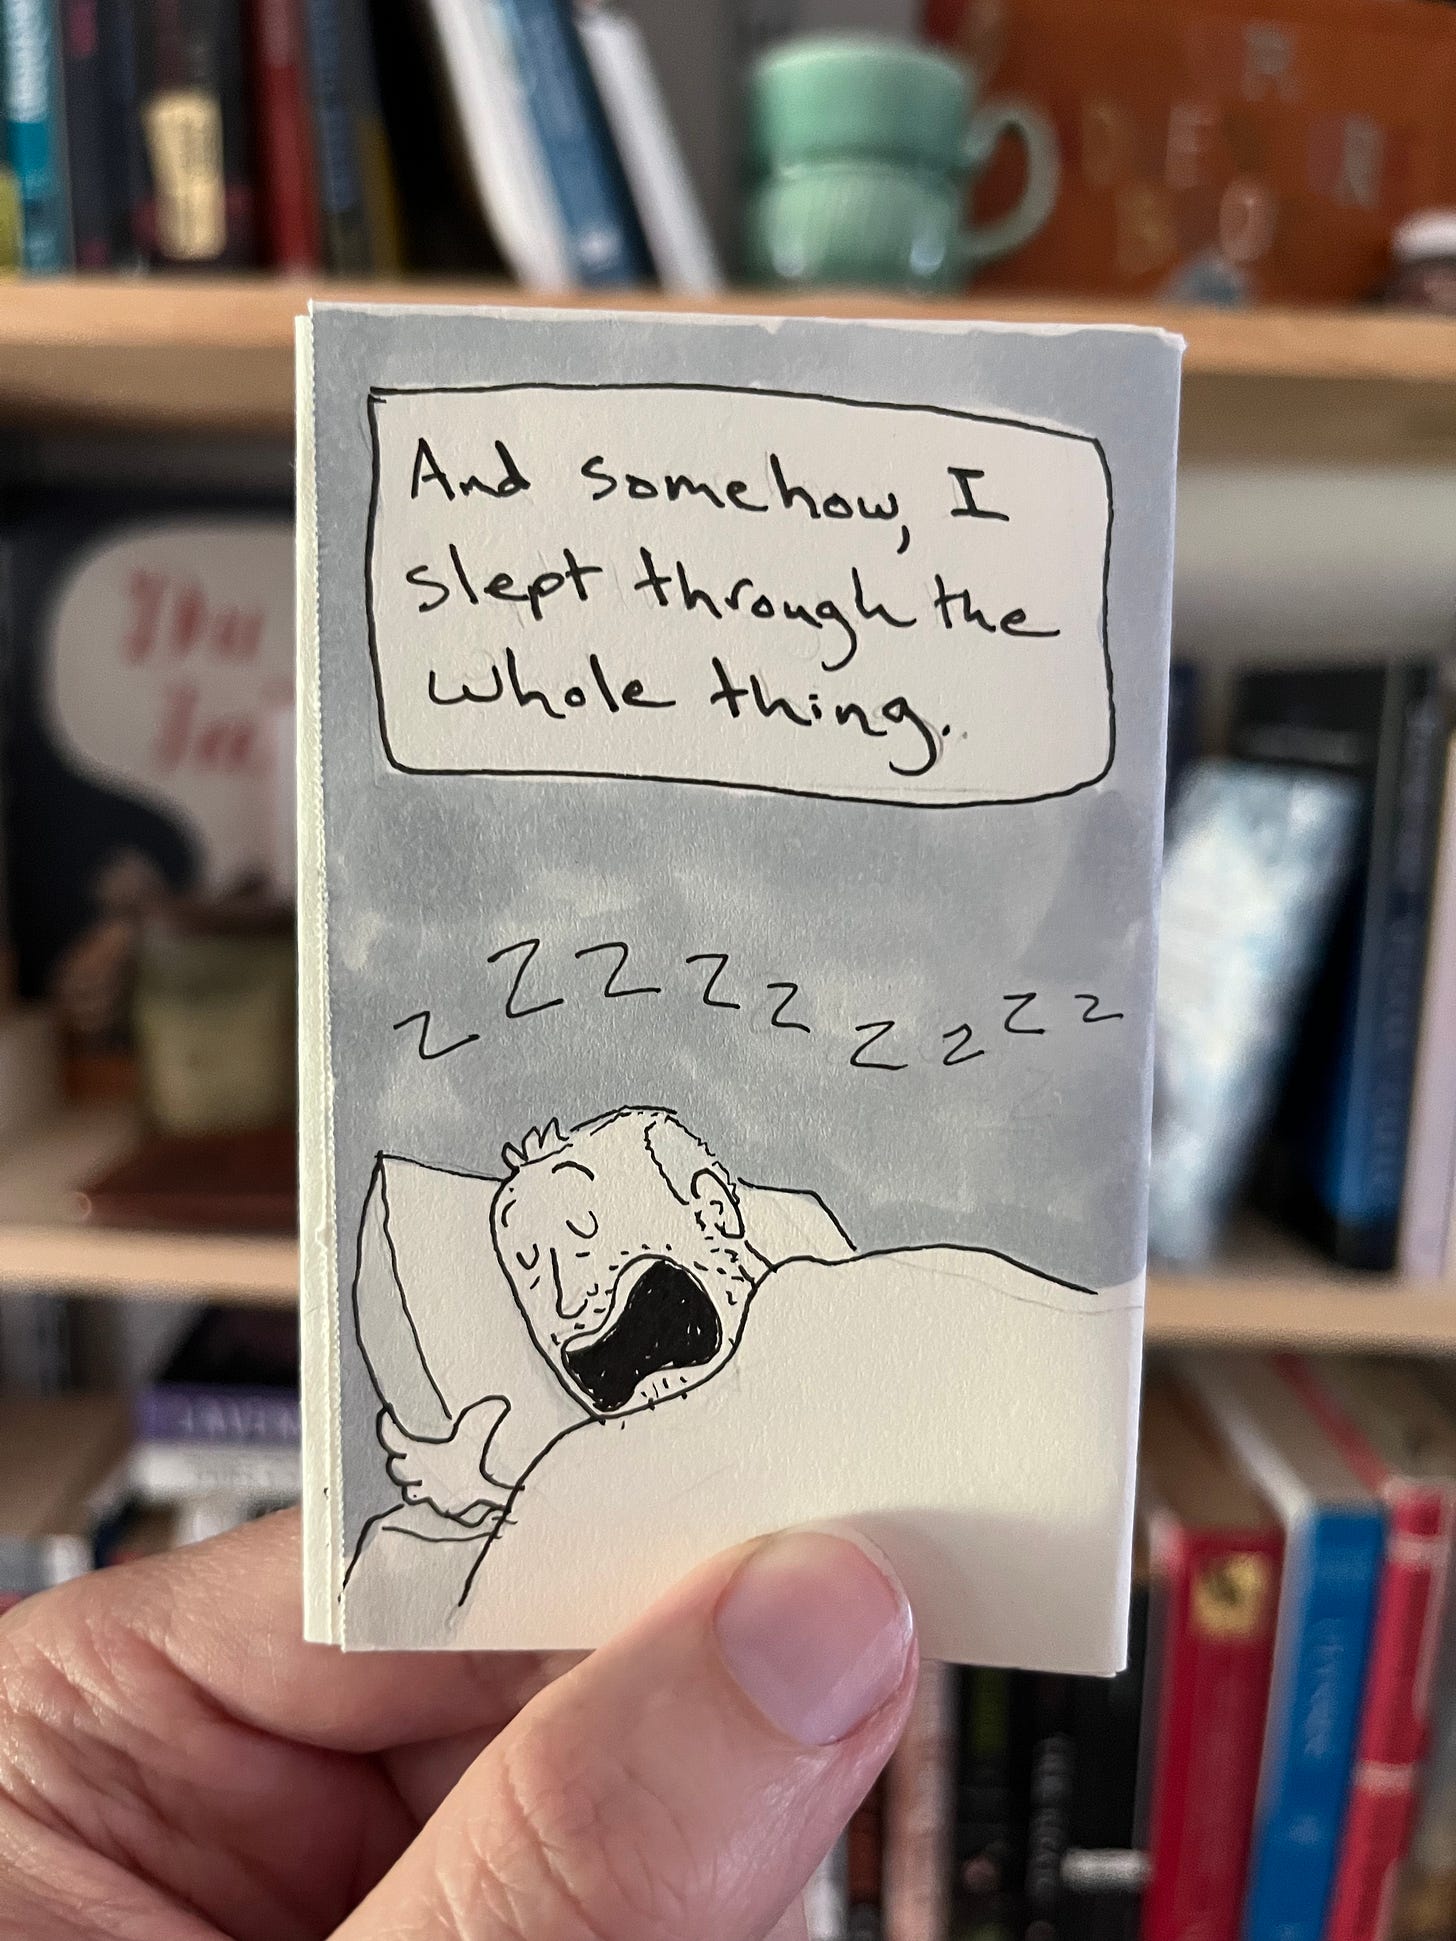 And somehow, I
slept through the
whole thing.
z z z z z z z z z